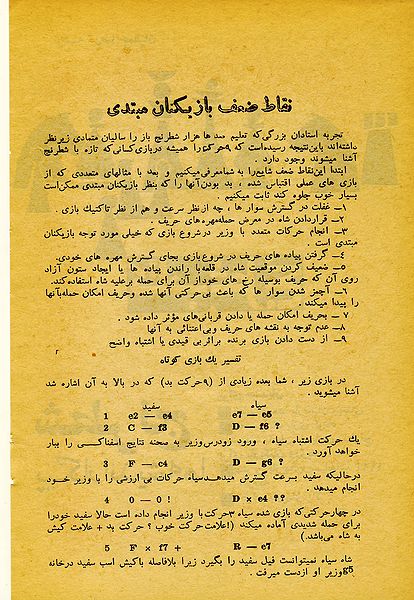 نقاط ضعف بازیکنان مبتدی
تجربه استادان بزرگی که تعلیم صدها هزار شطرنج باز را سالیان متمادی زیر نظر
داشته‌اند باین نتیجه رسیده‌است که ۹ حرکت را همیشه در بازی کسانی که تازه با شطرنج
آشنا میشوند وجود دارد .
ابتدا این نقاط ضعف شایع را به شما معرفی میکنیم و بعد با مثالهای متعددی که از
بازی های عملی اقتباس شده ، بد بودن آنها را که بنظر بازیکنان مبتدی ممکن است
بسیار خوب جلوه کند ثابت میکنیم .
۱ــ غفلت در گسترش سوار ها ، چه از نظر سرعت و هم از نظر تاکتیک بازی .
۲ــ قراردادن شاه در معرض حمله مهره های حریف .
۳ــ انجام حرکات متعدد با وزیر در شروع بازی که خیلی مورد توجه بازیکنان
مبتدی است .
۴ــ گرفتن پیاده های حریف در شروع بازی بجای گسترش مهره های خودی.
۵ــ ضعیف کردن موقعیت شاه در قلعه با راندن پیاده ها یا ایجاد ستون آزاد
روی آن که حریف بوسیله رخ های خود از آن برای حمله بر علیه شاه استفاده کند.
۶ــ آچمز شدن سوار ها که باعث بی حرکتی آنها شده و حریف امکان حمله بآنها
را پیدا میکند .
۷ ــ بحریف امکان حمله یا دادن قربانی های مؤثر داده شود .
۸ــ عدم توجه به نقشه های حریف و بی اعتنائی به آنها
۹ــ از دست دادن بازی برنده براثر بی قیدی و یا اشتباه واضح
تفسیر یك بازی کوتاه
در بازی زیر ، شما بعده زیادی از (۹ حرکت بد) که در بالا به آن اشاره شد
آشنا میشوید .
سفید سیاه
1 e2 — e4 e7 — e5
2 C — f3 D — f6 ?
یك حرکت اشتباه سیاه ، ورود زودرس وزیر به صحنه نتایج اسفناکی را ببار
خواهد آورد .
3 F — c4 D — g6 ?
درحالیکه سفید بسرعت گسترش میدهد سیاه حرکات بی ارزشی را با وزیر خود
انجام میدهد .
4 0 — 0 ! D × e4 ??
در چهار حرکتی که بازی شده سیاه ۳ حرکت با وزیر انجام داده است حالا سفید خود را
برای حمله شدیدی آماده میکند (! علامت حرکت خوب ? حرکت بد + علامت کیش
به شاه می‌باشد.)
5 F × f7 + R — e7
شاه سیاه نمیتوانست فیل سفید را بگیرد زیرا بلافاصله باکیش اسب سفید در خانه
g5 وزیر او از دست میرفت .